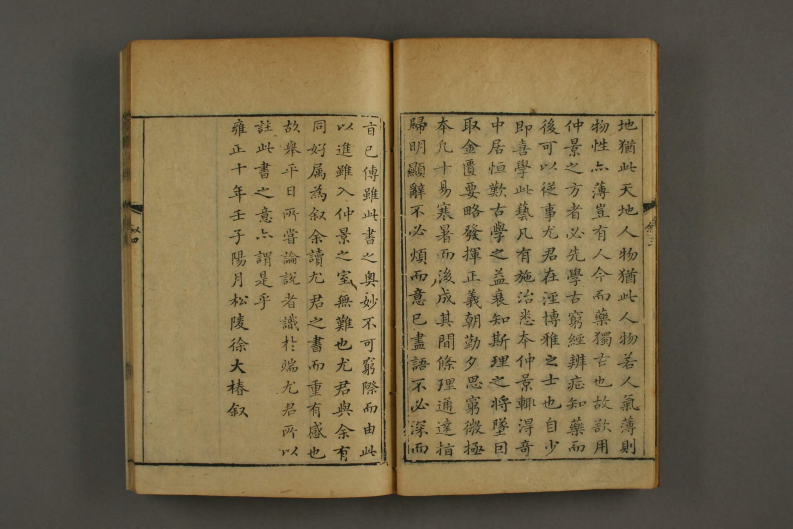 地猶此天地人物猶此人物若人氣薄則
物性亦薄豈有人今而藥獨古也故欲用
仲景之方者必先學古窮經辨症知藥而
後可以從事尤君在涇博雅之士也自少
即喜學此藝凡有施治悉本仲景輒得奇
中居恒歎古學之益衰知斯理之將墜因
取金匱要略發揮正義朝勤夕思窮微極
本凡十易寒暑而後成其間條理通達指
歸明顯辭不必煩而意已盡語不必深而
旨已傳雖此書之奧妙不可窮際而由此
以進雖入仲景之室無難也尤君與余有
同好属為叙余讀尤君之書而重有感也
故舉平日所嘗論說者識於端尤君所以
註此書之意亦謂是乎
雍正十年壬子陽月松陵徐大椿叙
叙三
叙四